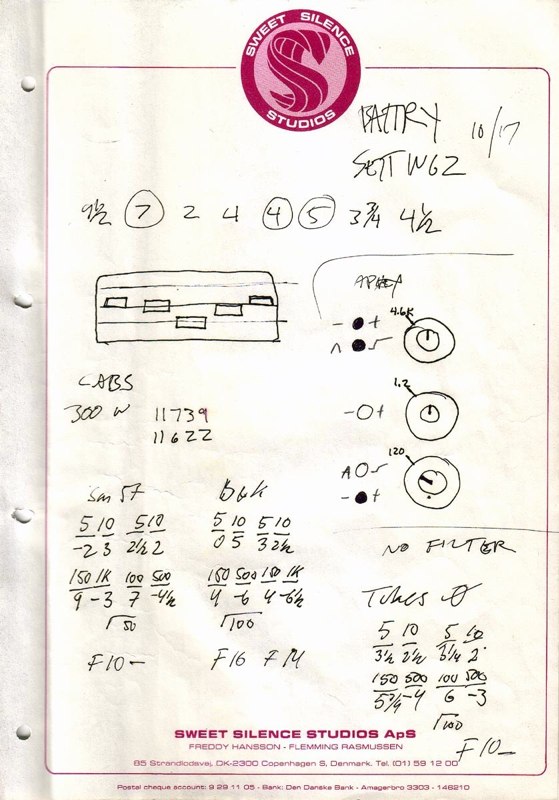 SWEET SILENCE STUDIOS
BATTRY 10/17
SETTINGZ
9½ 7 2 4 4 5 3¾ 4½
4.6K
- +
1.2
- +
120
- +
CABS
300 W 11739
11622
Sm 57
5 10 5 10
-2 3 2½ 2
150 1K 100 500
9 -3 7 -4½
50
F10-
B&K
5 10 5 10
0 5 3 2½
150 500 150 1K
4 -6 4 -6½
100
F16 F14
NO FILTER
5 10 5 10
3½ 2½ 3¼ 2
150 500 100 500
5¾ -4 6 -3
100
F10-
SWEET SILENCE STUDIOS ApS
FREDDY HANSSON - FLEMMING RASMUSSEN
85 Strandlodsvej, DK-2300 Copenhagen S, Denmark. Tel. (01) 59 12 00
Postal cheque account: 9 29 11 05 - Bank: Den Danske Bank - Amagerbro 3303 - 146210